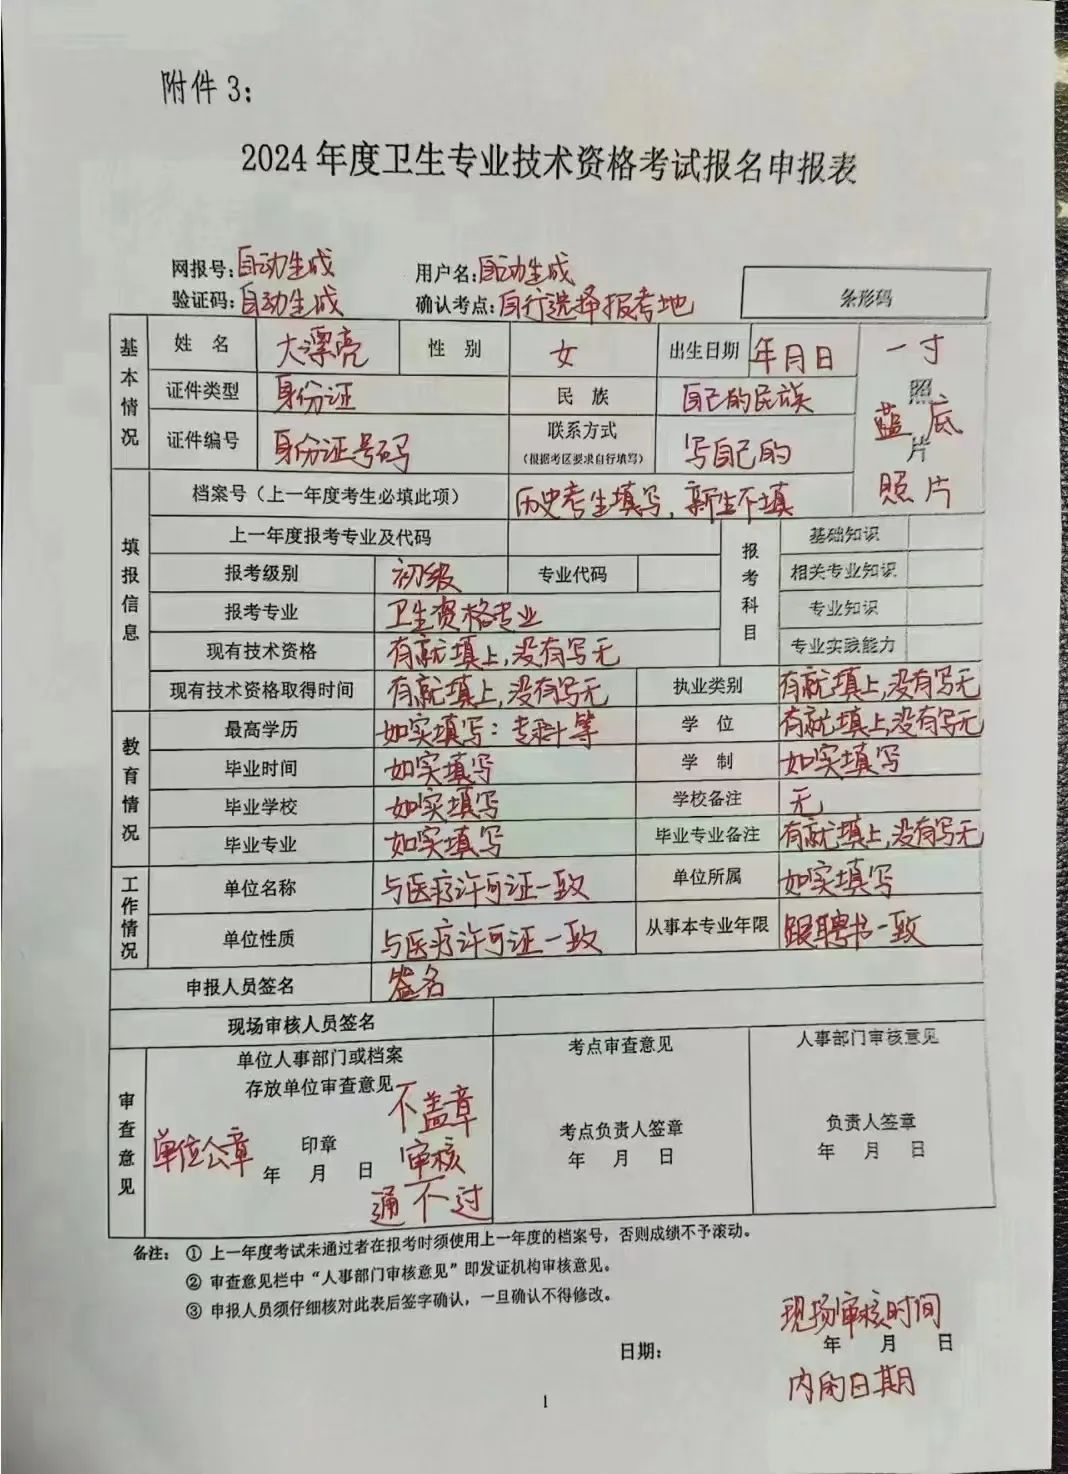 附件 3：
2024 年度卫生专业技术资格考试报名申报表
网报号:自动生成 用户名:自动生成
验证码:自动生成 确认考点:自行选择报考地 条形码
基本情况 姓 名 大漂亮 性 别 女 出生日期 年月日 一寸
证件类型 身份证 民 族 自己的民族 照
蓝底
片
证件编号 身份证号码 联系方式 写自己的
（根据考区要求自行填写）
照片
填报信息 档案号（上一年度考生必填此项） 历史考生填写，新生不填
上一年度报考专业及代码 报考科目 基础知识
报考级别 初级 专业代码 相关专业知识
报考专业 卫生资格专业 专业知识
现有技术资格 有就填上,没有写无 专业实践能力
现有技术资格取得时间 有就填上,没有写无 执业类别 有就填上,没有写无
教育情况 最高学历 如实填写：专科等 学 位 有就填上,没有写无
毕业时间 如实填写 学 制 如实填写
毕业学校 如实填写 学校备注 无
毕业专业 如实填写 毕业专业备注 有就填上,没有写无
工作情况 单位名称 与医疗许可证一致 单位所属 如实填写
单位性质 与医疗许可证一致 从事本专业年限 跟聘书一致
申报人员签名 签名
现场审核人员签名
审查意见 单位人事部门或档案 考点审查意见 人事部门审核意见
存放单位审查意见
不盖章
单位公章 印章 审核 考点负责人签章 负责人签章
年 月 日 年 月 日 年 月 日
通不过
备注： ① 上一年度考试未通过者在报考时须使用上一年度的档案号，否则成绩不予滚动。
② 审查意见栏中“人事部门审核意见”即发证机构审核意见。
③ 申报人员须仔细核对此表后签字确认，一旦确认不得修改。
现场审核时间
日期： 年 月 日
内的日期
1